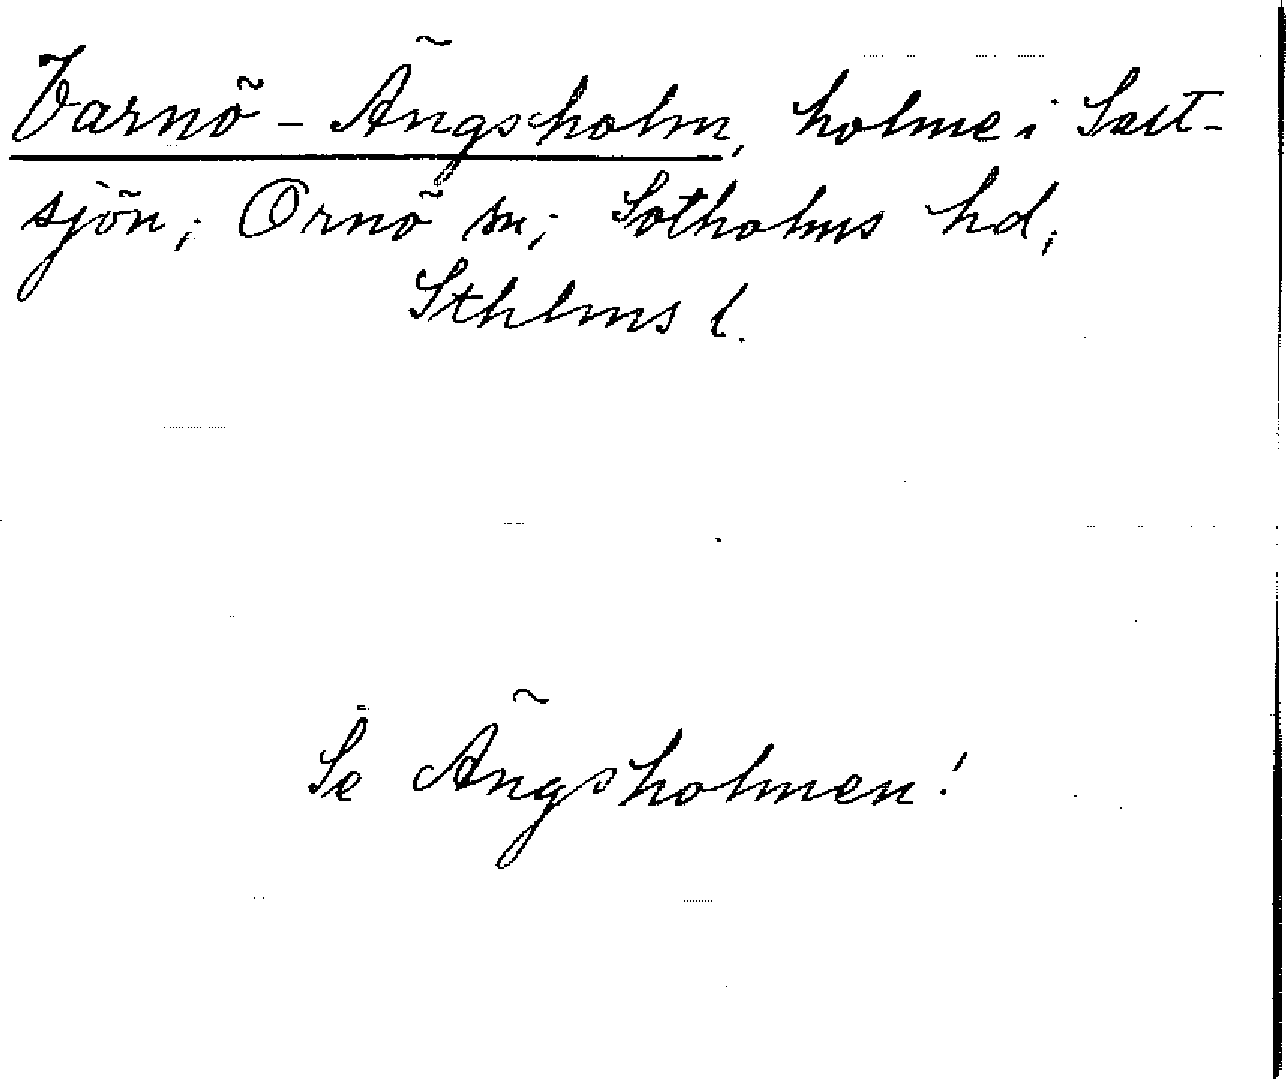 Varnö - Ängsholm, holme i Salt-
sjön; Ornö sn; Sotholms hd,
Sthlms l.
Se Ängsholmen!